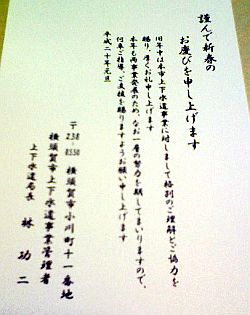 謹んで新春の
お慶びを申し上げます
旧年中は本市上下水道事業に対しまして格別のご理解とご協力を
賜り、厚くお礼申し上げます
本年も両事業発展のため、なお一層の努力を期してまいりますので、
何卒ご指導、ご支援を賜りますようお願い申し上げます
平成二十年元旦
〒238-8550
横須賀市小川町十一番地
横須賀市上下水道事業管理者
上下水道局長 林 功二